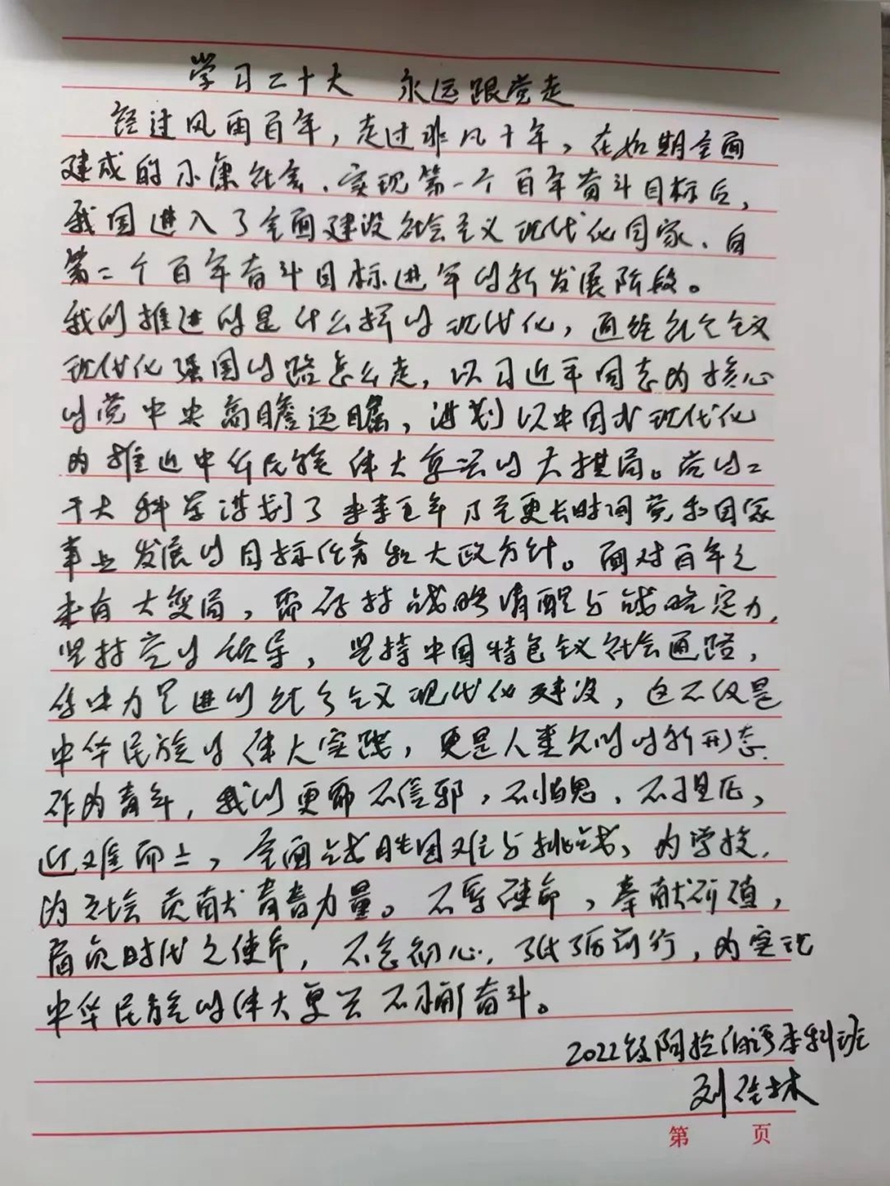 学习二十大 永远跟党走
经过风雨百年，走过非凡十年，在如期全面
建成的小康社会、实现第一个百年奋斗目标后，
我国进入了全面建设社会主义现代化国家、向
第二个百年奋斗目标进军的新发展阶段。
我们推进的是什么样的现代化，通往社会主义
现代化强国的路怎么走，以习近平同志为核心
的党中央高瞻远瞩，谋划以中国式现代化
为推进中华民族伟大复兴的大棋局。党的二
十大科学谋划了未来五年乃至更长时间党和国家
事业发展的目标任务和大政方针。面对百年之
未有大变局，需保持战略清醒与战略定力，
坚持党的领导，坚持中国特色主义社会道路，
集中力量进行社会主义现代化建设，这不仅是
中华民族的伟大实践，更是人类文明的新形态。
作为青年，我们更需不信邪，不怕鬼，不畏压，
迎难而上，全面战胜困难与挑战，为学校，
为社会贡献青春力量。不辱使命，奉献价值，
肩负时代之使命，不忘初心，砥砺前行，为实现
中华民族的伟大复兴不懈奋斗。
2022级阿拉伯语本科班
刘
第 页